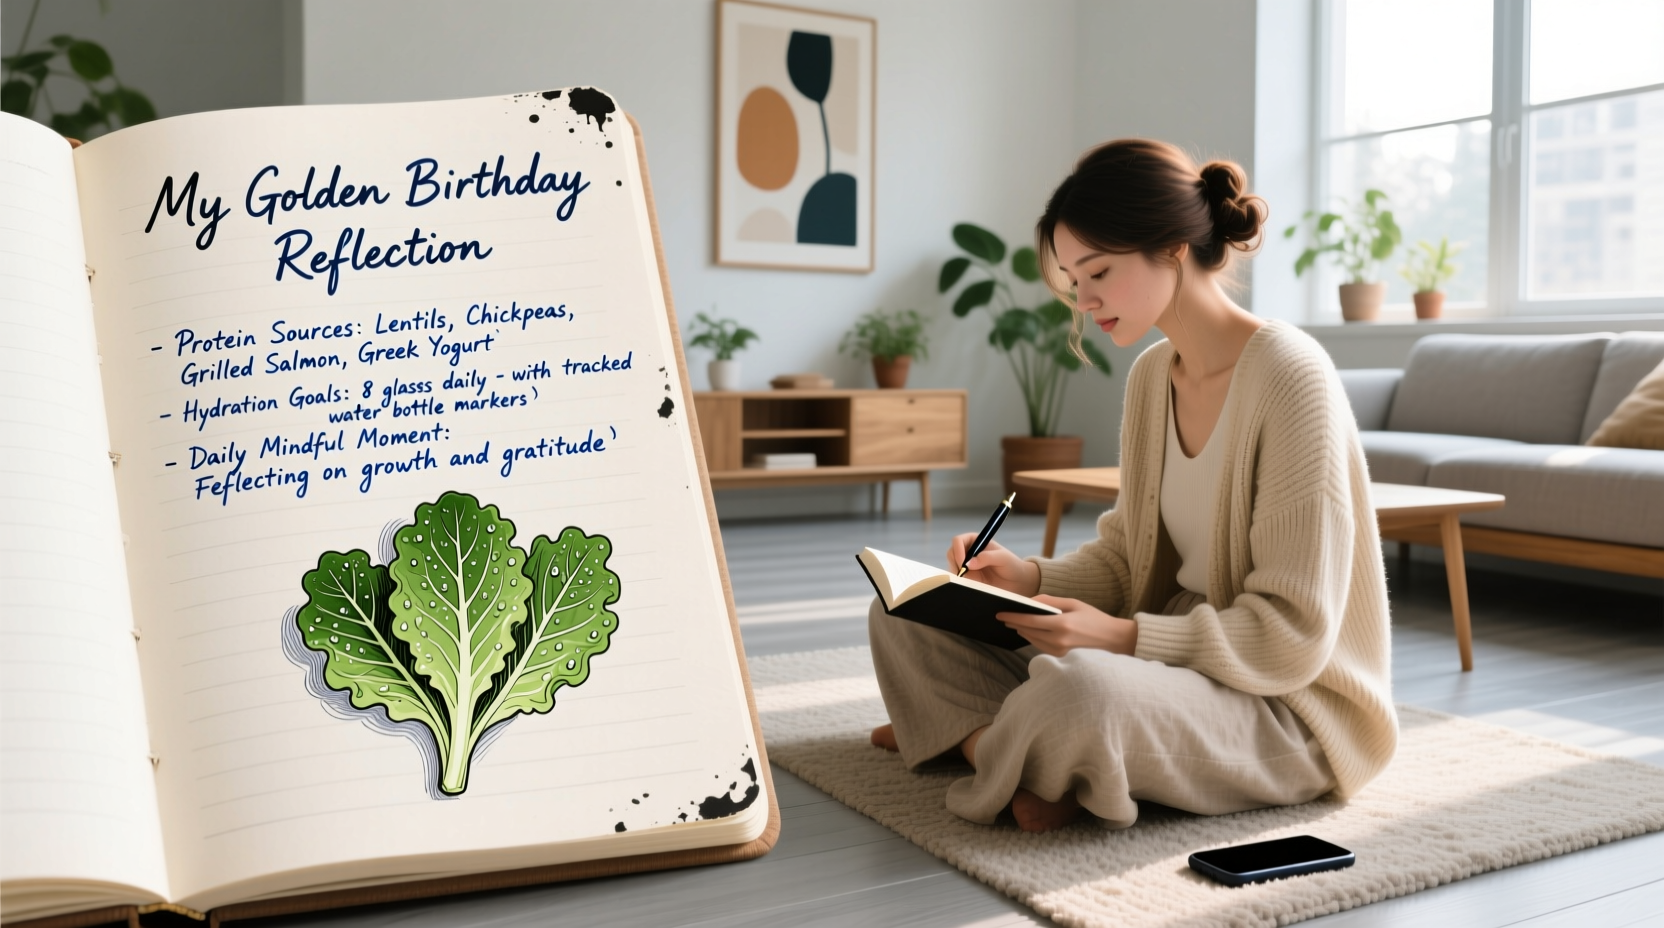 My Golden Birthday
Reflection
- Protein Sources: Lentils, Chickpeas,
Grilled Salmon, Greek Yogurt'
- Hydration Goals: 8 glasss daily - with tracked
water bottle markers)
- Daily Mindful Moment:
Feflecting on growth and gratitude)